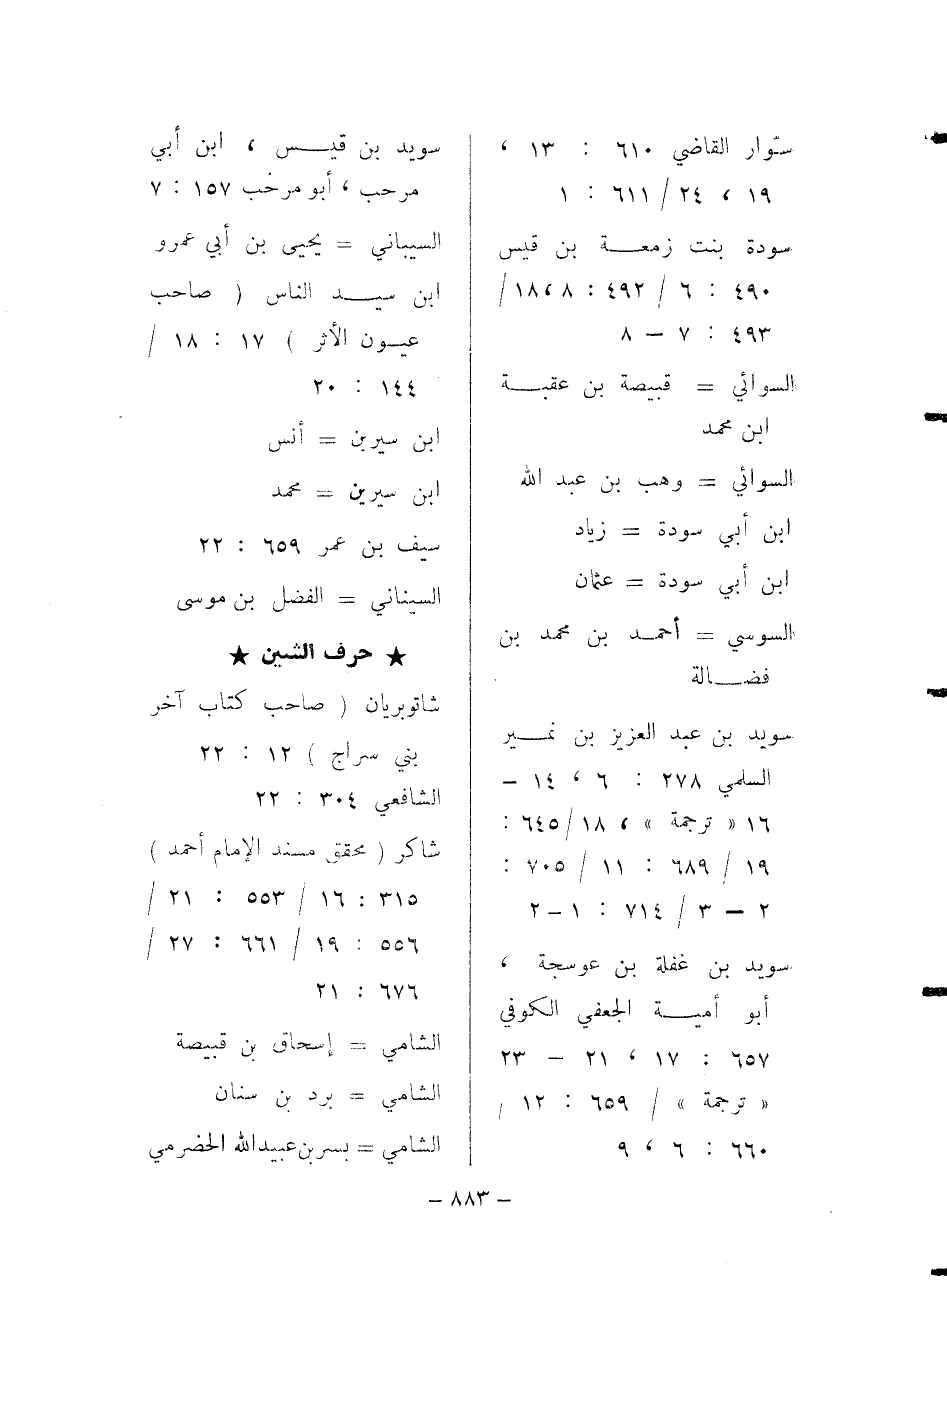 سوّار القاضي ٦١٠ : ١٣ ،
١٩ ، ٢٤ / ٦١١ : ١
سودة بنت زمعة بن قيس
٤٩٠ : ٦ / ٤٩٢ : ٨ ، ١٨ /
٤٩٣ : ٧ – ٨
السوائي = قبيصة بن عقبة
ابن محمد
السوائي = وهب بن عبد الله
ابن أبي سودة = زياد
ابن أبي سودة = عثمان
السوسي = أحمد بن محمد بن
فضالة
سويد بن عبد العزيز بن نمير
السلمي ٢٧٨ : ٦ ، ١٤ –
١٦ « ترجمة » ، ١٨ / ٦٤٥ :
١٩ / ٦٨٩ : ١١ / ٧٠٥ :
٢ – ٣ / ٧١٤ : ١ – ٢
سويد بن غفلة بن عوسجة ،
أبو أمية الجعفي الكوفي
٦٥٧ : ١٧ ، ٢١ – ٢٣
« ترجمة » / ٦٥٩ : ١٢ /
٦٦٠ : ٦ ، ٩
سويد بن قيس ، ابن أبي
مرحب ، أبو مرحب ١٥٧ : ٧
السيباني = يحيى بن أبي عمرو
ابن سيد الناس ( صاحب
عيون الأثر ) ١٧ : ١٨ /
١٤٤ : ٢٠
ابن سيرين = أنس
ابن سيرين = محمد
سيف بن عمر ٦٥٩ : ٢٢
السيناني = الفضل بن موسى
★ حرف الشين ★
شاتوبريان ( صاحب كتاب آخر
بني سراج ) ١٢ : ٢٢
الشافعي ٣٠٤ : ٢٢
شاكر ( محقق مسند الإمام أحمد )
٣١٥ : ١٦ / ٥٥٣ : ٢١ /
٥٥٦ : ١٩ / ٦٦١ : ٢٧ /
٦٧٦ : ٢١
الشامي = إسحاق بن قبيصة
الشامي = برد بن سنان
الشامي = بسر بن عبيدالله الحضرمي
– ٨٨٣ –